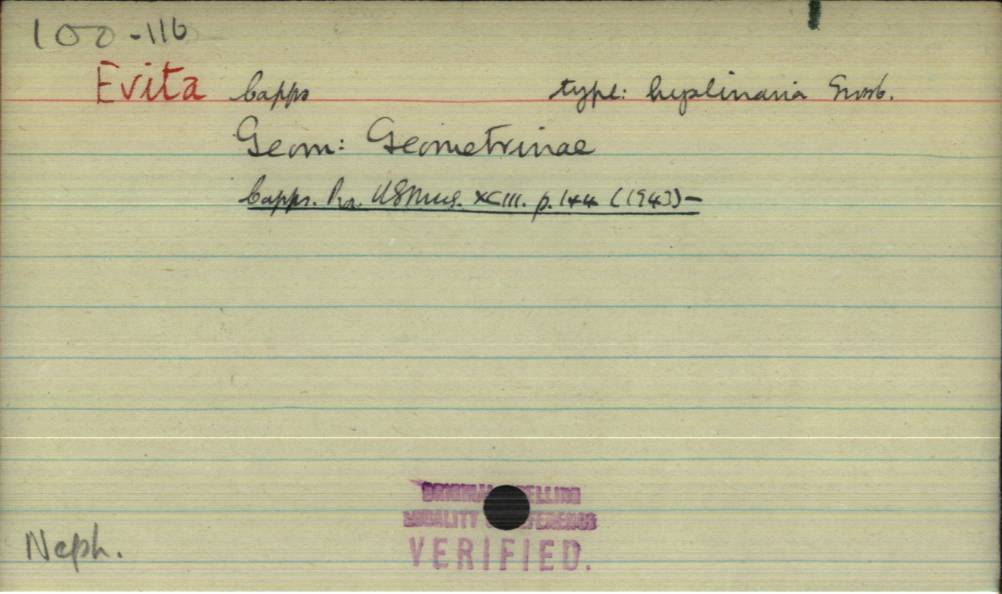 100-116
Evita Capps type: hyplinaria Grossb.
Geom: Geometrinae
Capps. Pr. USMus. XCIII. p. 144 (1943)-
ORIGINAL SPELLING
LOCALITY & REFERENCE
VERIFIED.
Neph.